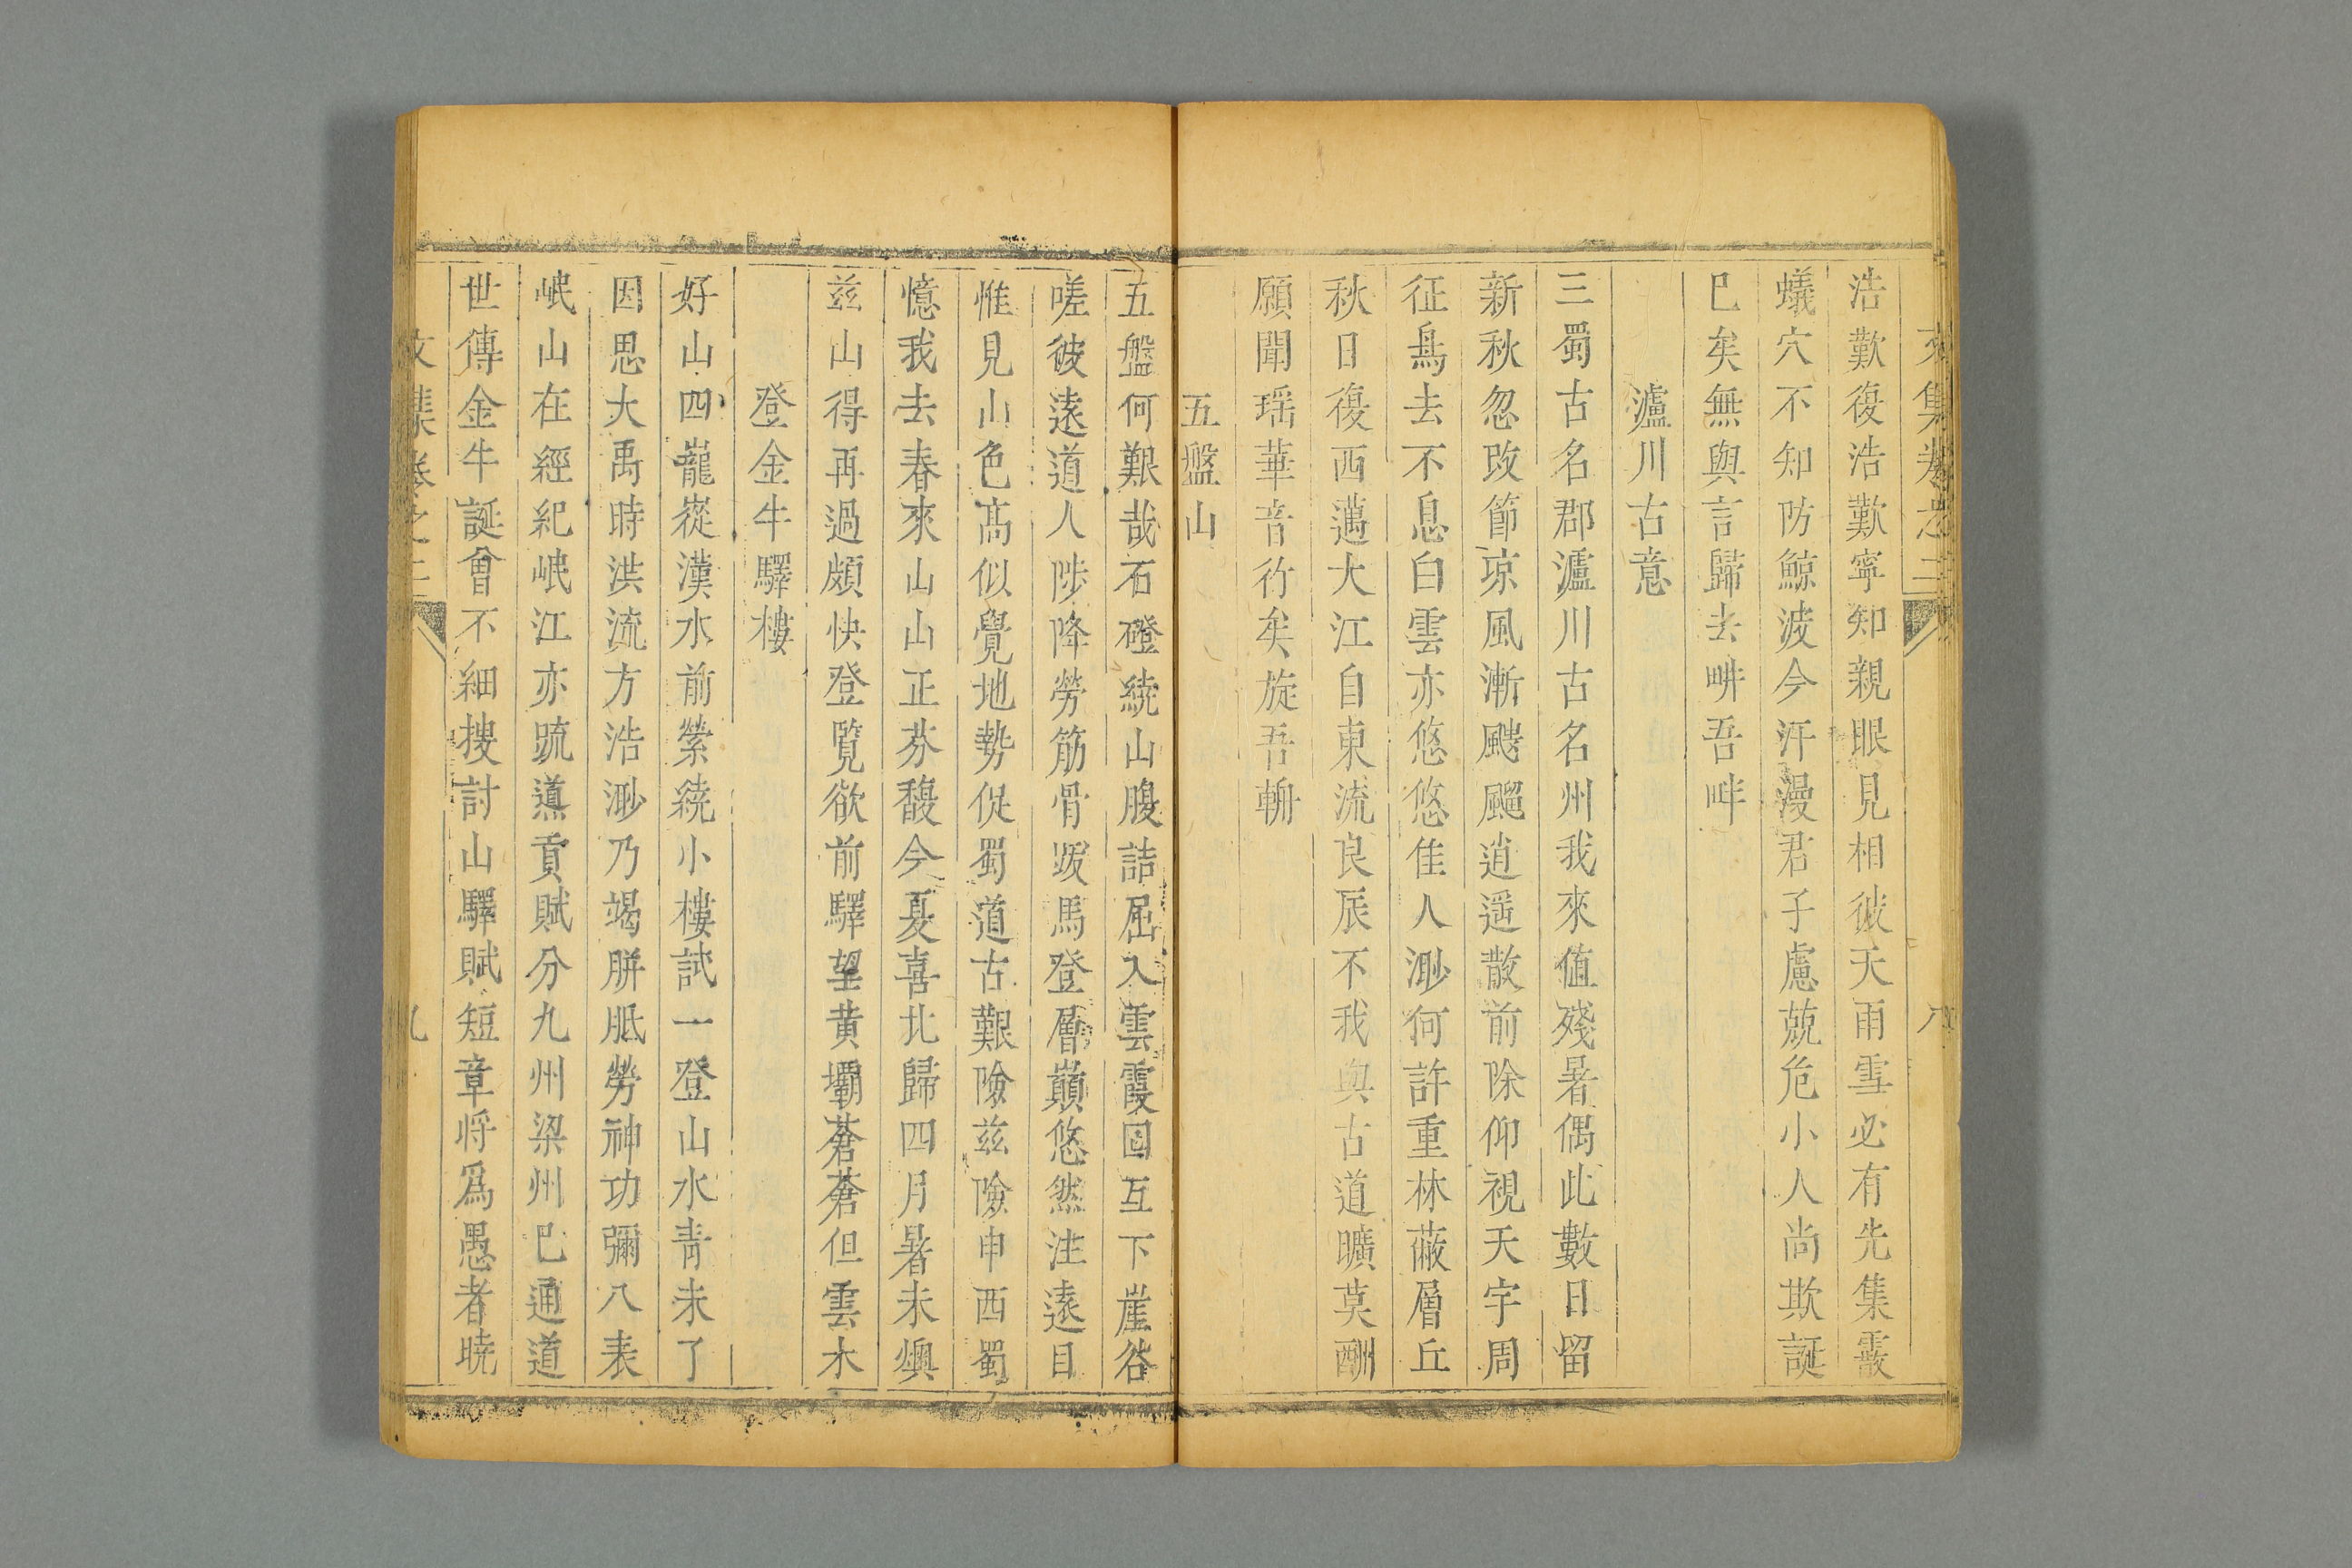 文集卷之二
八
浩歎復浩歎寧知親眼見相彼天雨雪必有先集霰
蟻穴不知防鯨波今汗漫君子慮兢危小人尚欺誕
巳矣無與言歸去畊吾畔
瀘川古意
三蜀古名郡瀘川古名州我來值殘暑偶此數日留
新秋忽改節凉風漸颼飀逍遥散前除仰視天宇周
征鳥去不息白雲亦悠悠佳人渺何許重林蔽層丘
秋日復西邁大江自東流良辰不我與古道曠莫酬
願聞瑶華音行矣旋吾輈
五盤山
五盤何艱哉石磴繞山腹詰屈入雲霞回互下崖谷
嗟彼遠道人陟降勞筋骨跋馬登層巔悠然注遠目
惟見山色髙似覺地勢促蜀道古艱險兹險申西蜀
憶我去春來山山正芬馥今夏喜北歸四月暑未燠
兹山得再過頗快登覧欲前驛望黄壩蒼蒼但雲木
登金牛驛樓
好山四巃嵸漢水前縈繞小樓試一登山水青未了
因思大禹時洪流方浩渺乃竭胼胝勞神功彌八表
岷山在經紀岷江亦疏導貢賦分九州梁州巴通道
世傳金牛誕曾不細搜討山驛賦短章将爲愚者曉
文集卷之二
九